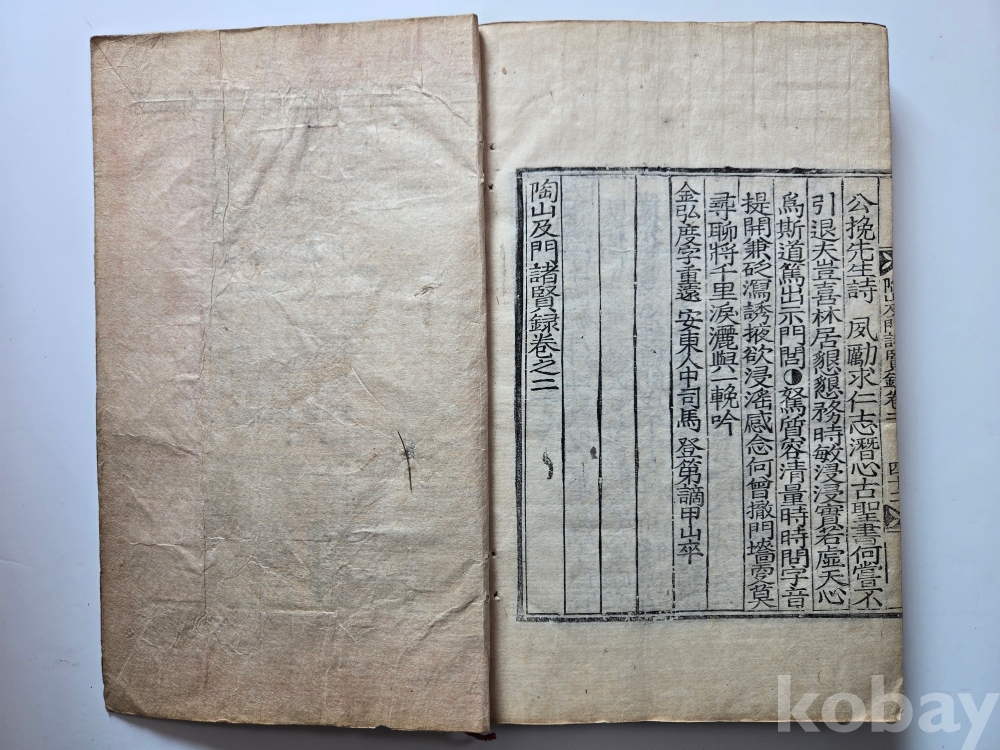 陶山及門諸賢錄卷二 四十二
公挽先生詩 夙勵求仁志潛心古聖書何嘗不
引退夫豈喜林居懇懇務時敏浸浸實若虛天心
爲斯道篤出示門閭 駑質容淸量時時問字音
提開兼砭漏誘掖欲浸滛感念何曾撤門墻奠
尋聊將千里淚灑與一輓吟
金弘度字重遠 安東人中司馬 登第謫甲山卒
陶山及門諸賢録卷之二
kobay